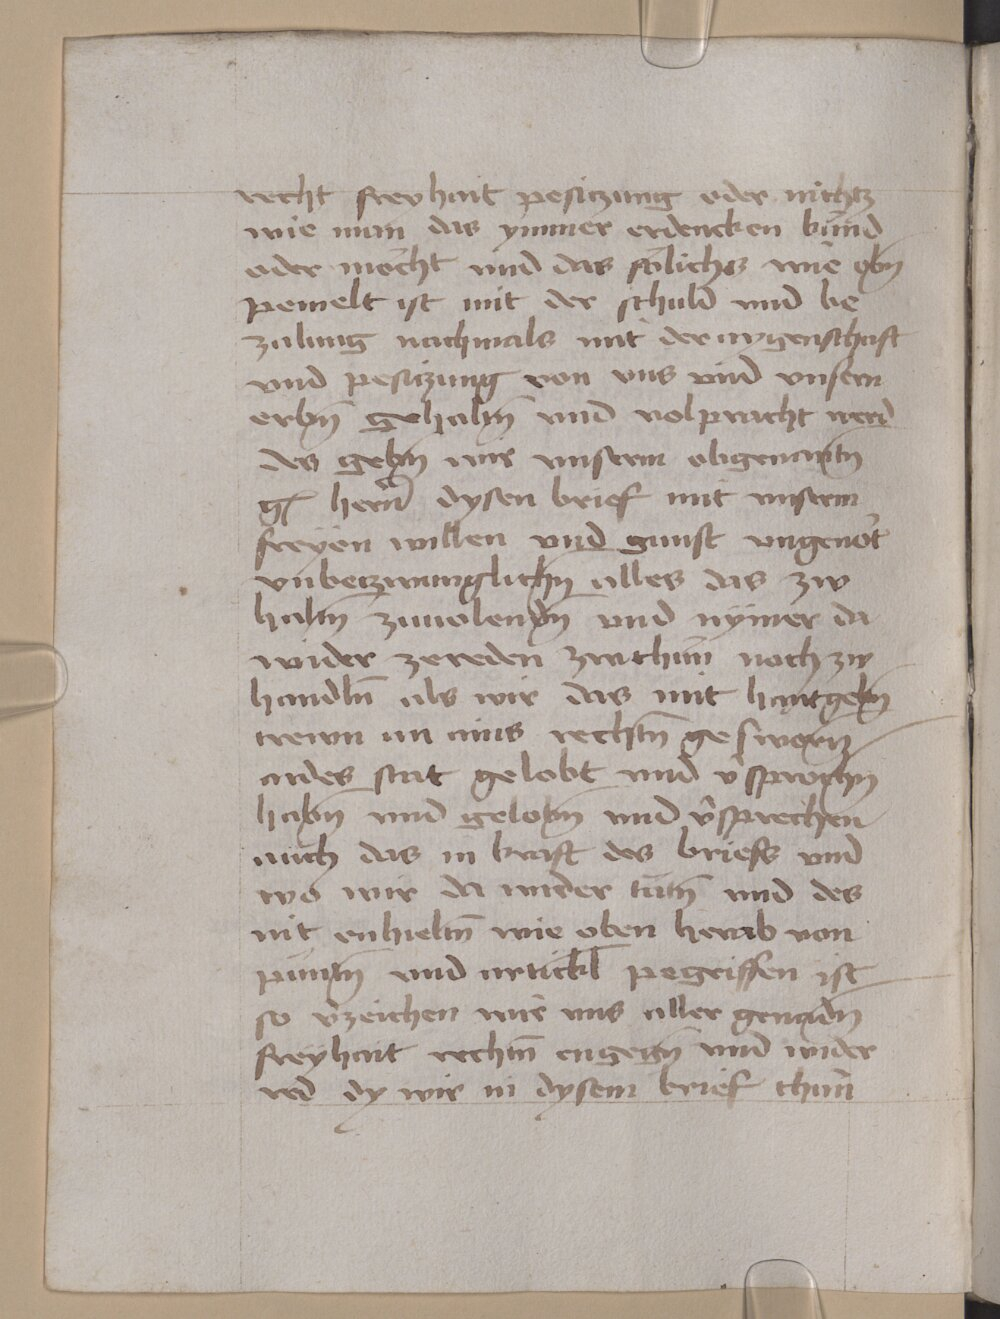 recht freyhait pesitzung oder nichtz
wie man das ymmer erdencken kund
oder mocht und das sölichs wie obn̄
pemelt ist mit der schuld und be
zalung nachmals mit der aygenschaft
und pesitzung von uns und unsern
erbn̄ gehaltn̄ und volpracht werd
des gebn̄ wir unserm obgenantn̄
g hern̄ dysen brief mit unserm
freyen willen und gunst ungenöt
unbetzwunglichn̄ alles das zw
haltn̄ zuuolendn̄ und nymer da
wider zereden zwthun noch zw
handln̄ als wir das mit hantgebn̄
trewn an ains rechtn̄ gesworn
aides stat gelobt und v̄sprochn̄
habn̄ und gelobn̄ und v̄sprechen
auch das in kraft des briefs und
wo wir da wider tātn̄ und des
nit enhieltn̄ wie oben herab von
puntn̄ und artickl pegriffen ist
so v̄zeichen wir uns aller genadn̄
freyhait rechtn̄ engegn̄ und wider
red dy wir in dysem brief thun